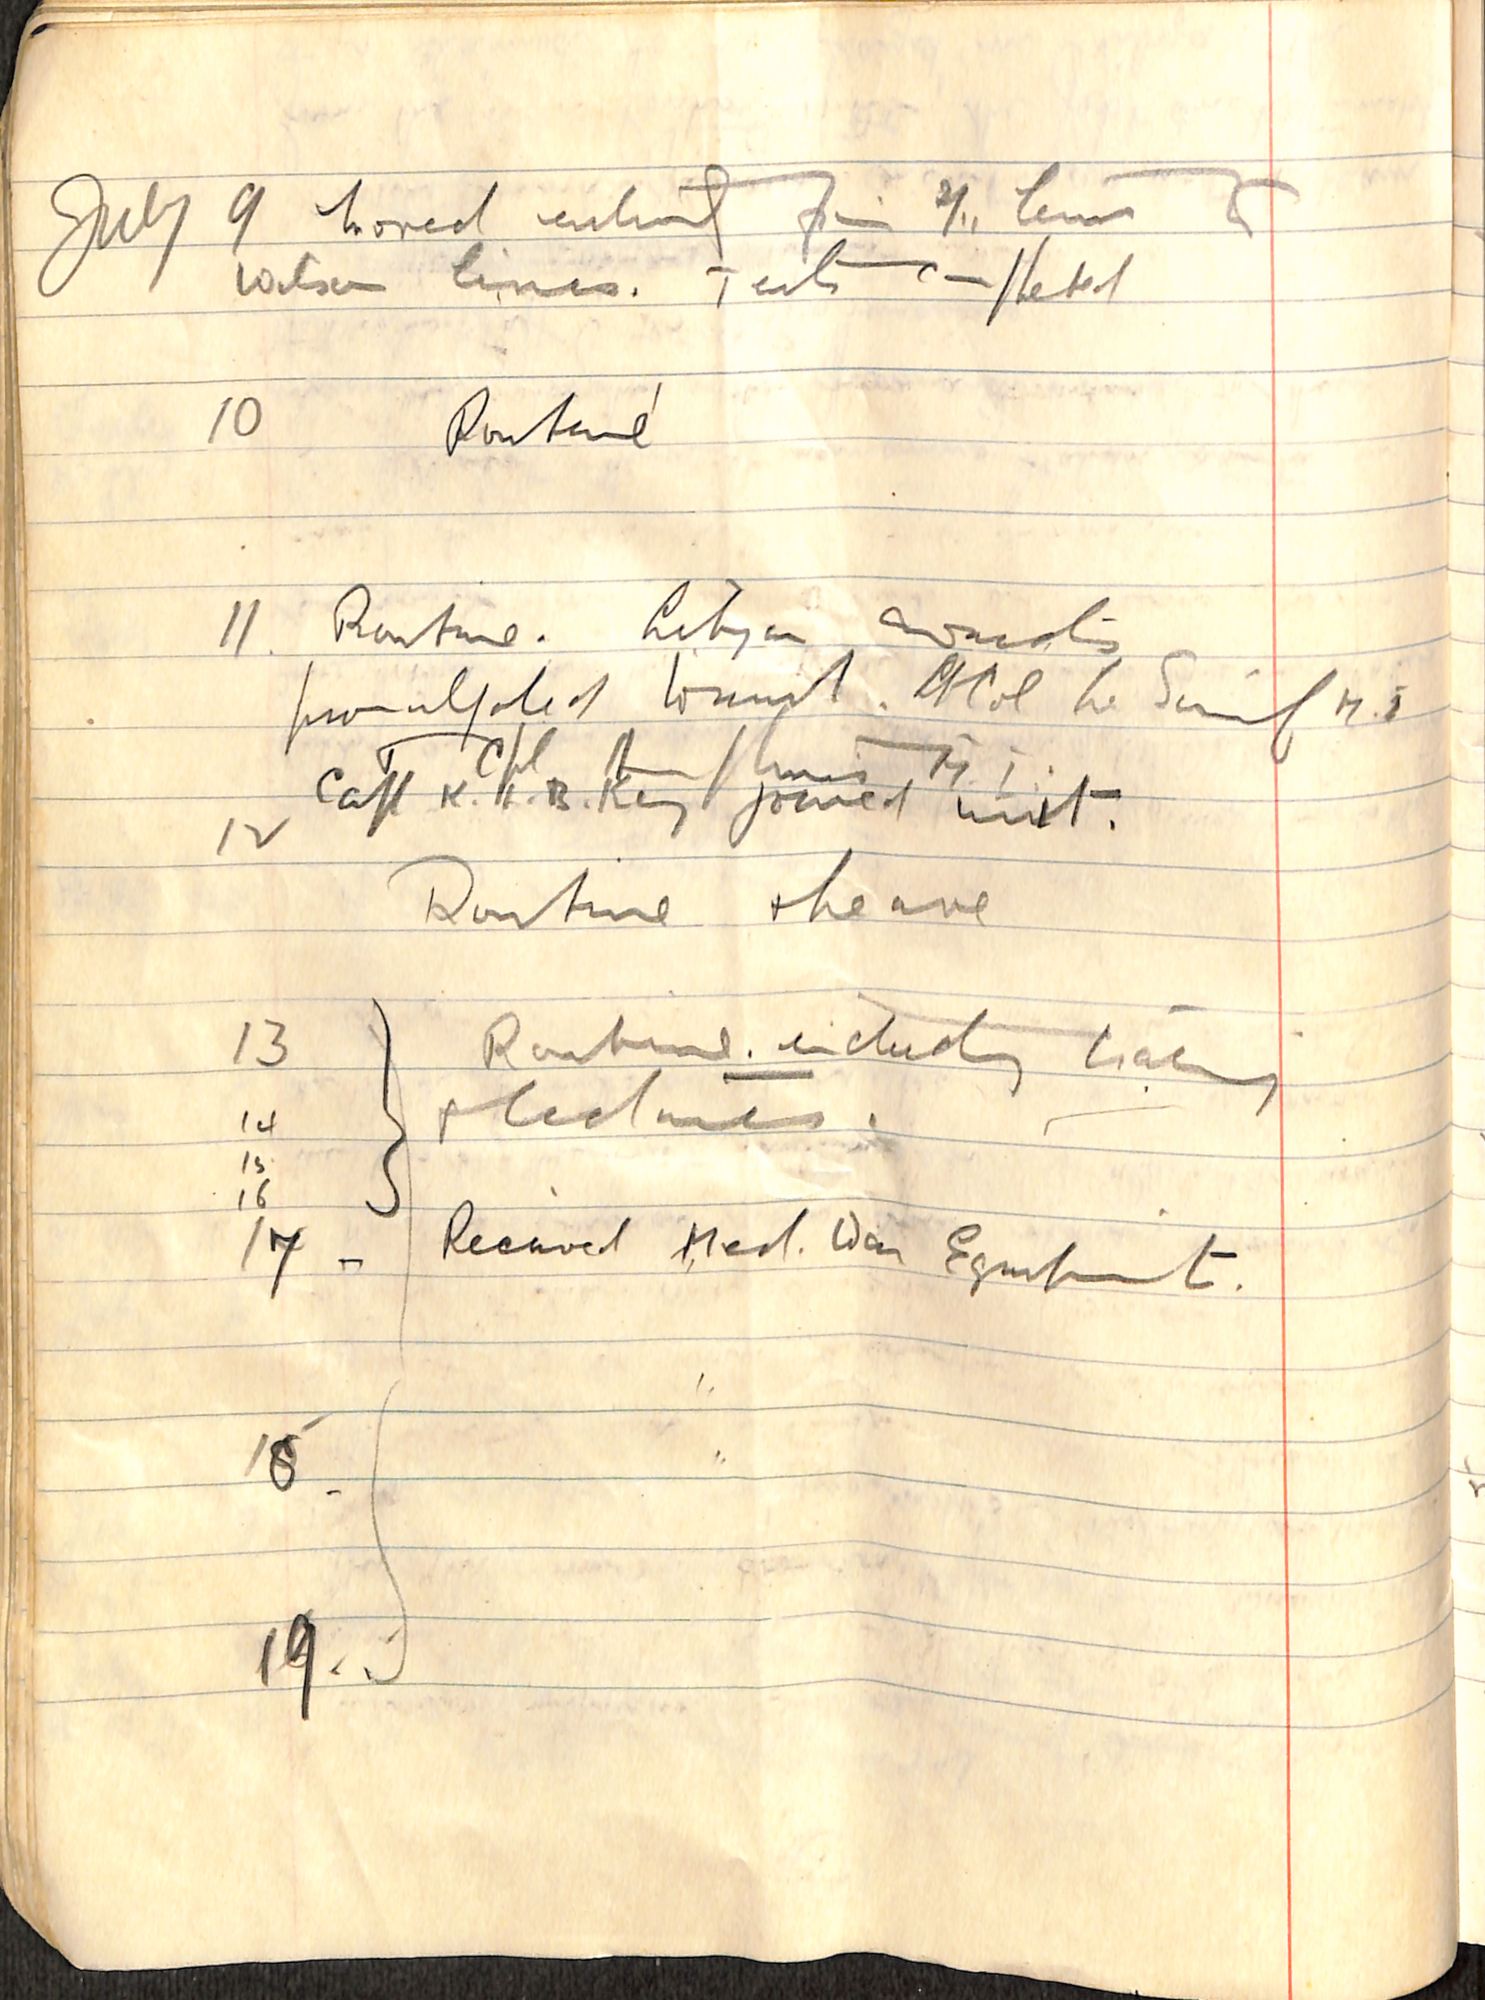 July 9 Moved entirely from 2/11 lines to
Watson lines. Tents completed
10 Routine
11. Routine. Libyan awards
promulgated tonight. Lt Col Le Souef M.I
Cpl M.I.
Capt K. B. Key joined unit.
12
Routine + leave
13 Routine. including training
14 + lectures.
15
16
17 - Received Med. War Equipment.
18 -
19.